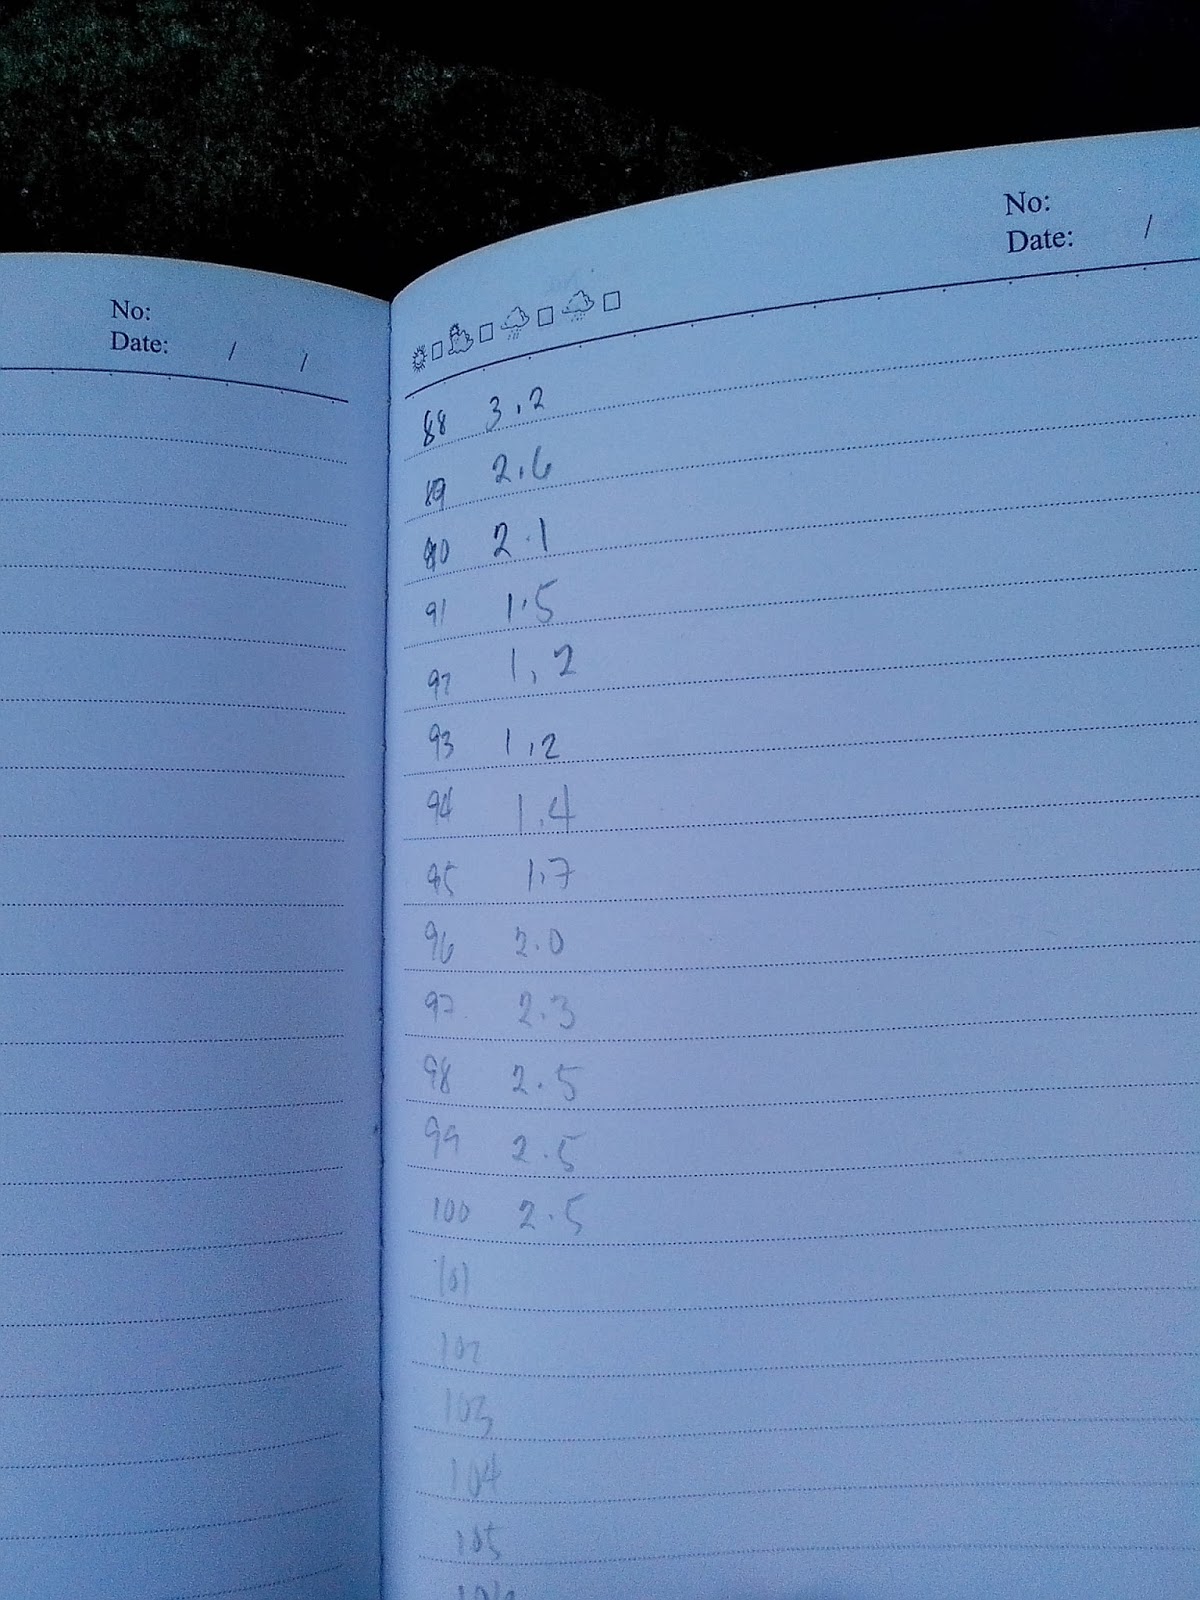 No:
Date: / /
No:
Date: /
88 3.2
89 2.6
90 2.1
91 1.5
92 1.2
93 1.2
94 1.4
95 1.7
96 2.0
97 2.3
98 2.5
99 2.5
100 2.5
101
102
103
104
105